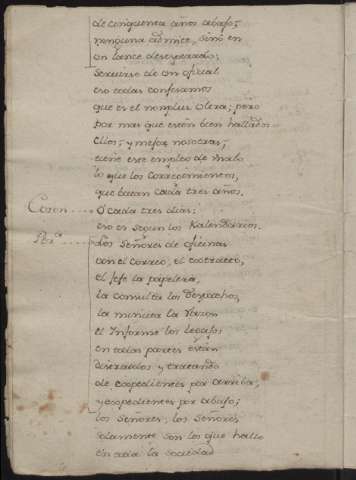 de cinquenta años abajo;
ninguna admite, sino en
un lance desesperado;
Servirse de un oficial
eso todas confesamos
que es el nonplus ultra; pero
por mas que estén bien hallados
Ellos, y mejor nosotras;
tiene este empleo de malo
lo que los Corregimientos,
que vacan cada tres años.
Coron O cada tres dias;
eso es segun los Kalendarios.
Los Señores de oficinas
con el Correo, el extracto,
el Jefe la papelera,
la consulta los Despachos,
la minuta la razon
el Informe los legajos
en todas partes están
distraidos y tratando
de expedientes por arriba,
y expedientes por abajo;
los Señores, los Señores
solamente son los que hallo
en toda la Sociedad